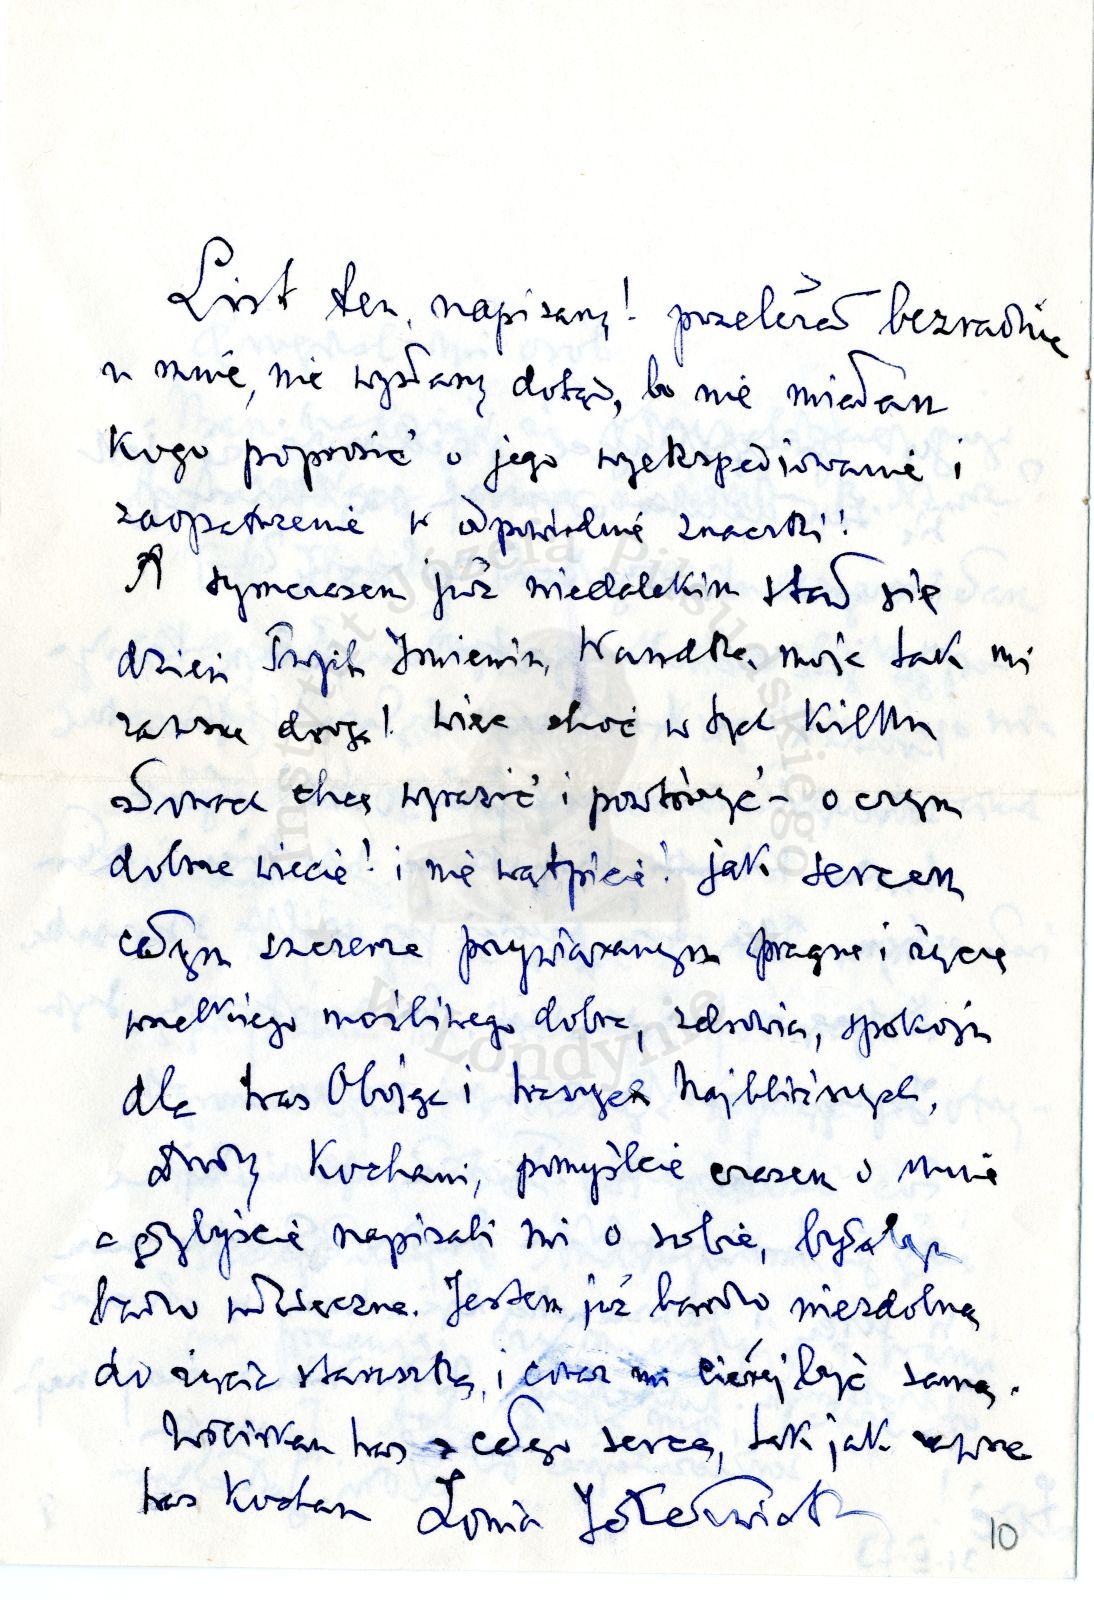 List ten, napisany! przeleżał bezradnie
u mnie, nie wysłany dotąd, bo nie miałam
kogo poprosić o jego wyekspediowanie i
zaopatrzenie w odpowiednie znaczki!
A tymczasem już niedalekim stał się
dzień Twych Imienin, Wandko, moja tak mi
zawsze droga! więc choć w tych kilku
słowach chcę wyrazić i powtórzyć – o czym
dobrze wiecie! i nie wątpicie! jak sercem
całym szczerze przywiązanym pragnę i życzę
wszelkiego możliwego dobra, zdrowia, spokoju
dla Was Obojga i Waszych Najbliższych,
Drodzy Kochani, pomyślcie czasem o mnie
a gdybyście napisali mi o sobie, byłabym
bardzo wdzięczna. Jestem już bardzo niezdolną
do życia staruszką, i coraz mi ciężej być samą.
Uściskam Was z całego serca, tak jak zawsze
Was Kocham Lonia
10
Instytut Józefa Piłsudskiego
w Londynie